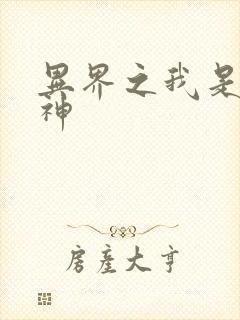 异界之我是
神
房产大亨